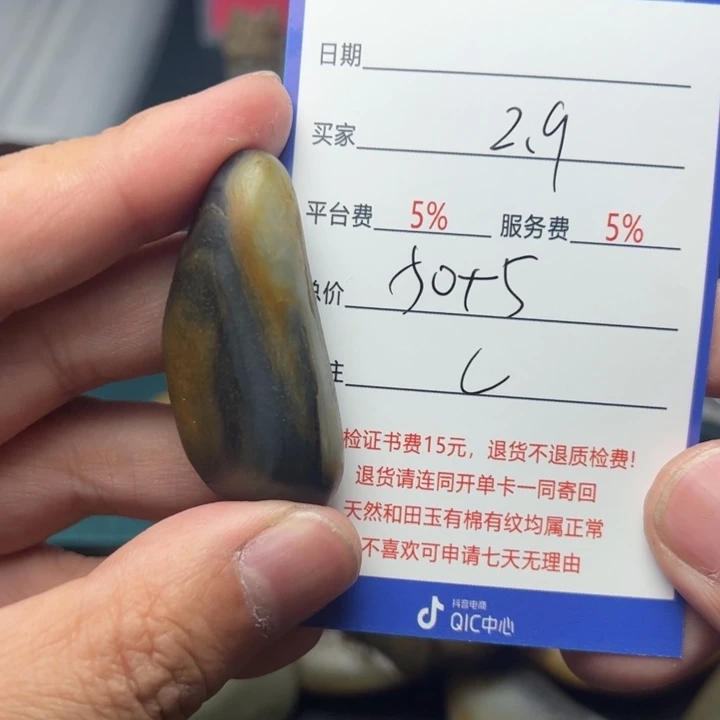 日期
买家 2.9
平台费 5% 服务费 5%
总价 50+5
注
检证书费15元，退货不退质检费!
退货请连同开单卡一同寄回
天然和田玉有棉有纹均属正常
不喜欢可申请七天无理由
抖音电商
QIC中心